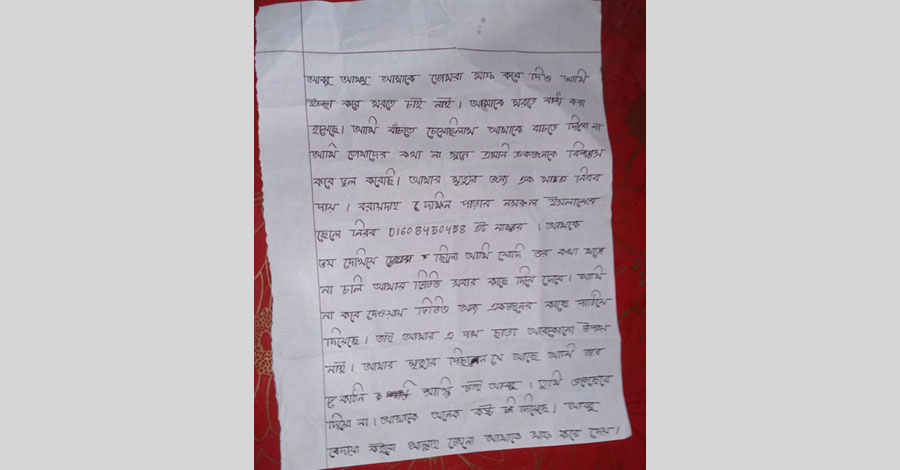 আব্বু আম্মু আমাকে তোমরা মাফ করে দিও আমি
ইচ্ছা করে মরতে চাই নাই। আমাকে মরতে বাধ্য করা
হয়েছে। আমি বাঁচতে চেয়েছিলাম আমাকে বাচতে দিলো না
আমি তোমাদের কথা না শুনে এমনি একজনকে বিশ্বাস
করে ভুল করেছি। আমার মৃত্যুর জন্য এক মাত্র নিরব
দায়। দক্ষিন পাড়ার নজরুল ইসলামের
ছেলে নিরব 01608450458 এই নাম্বার। আমাকে
ভয় দেখিয়ে ছিলো আমি যেদি তর কথা মতো
না চলি আমার ভিডিও সবার কাছে দিয়ে দেবে। আমি
না করে দেওয়ায় ভিডিও অন্য একজনের কাছে পাঠিয়ে
দিয়েছে। তাই আমার এ পথ ছাড়া আরকোনো উপায়
নাই। আমার মৃত্যুর পিছনে যে আছে আমি তার
কঠিন শাস্তি চাই আব্বু। তুমি ওরছেরে
দিয়ো না। আমাকে অনেক কষ্ট দিয়েছে। আব্বু
দোয়া কইরো আল্লাহ যেনো আমাকে মাফ করে দেয়।